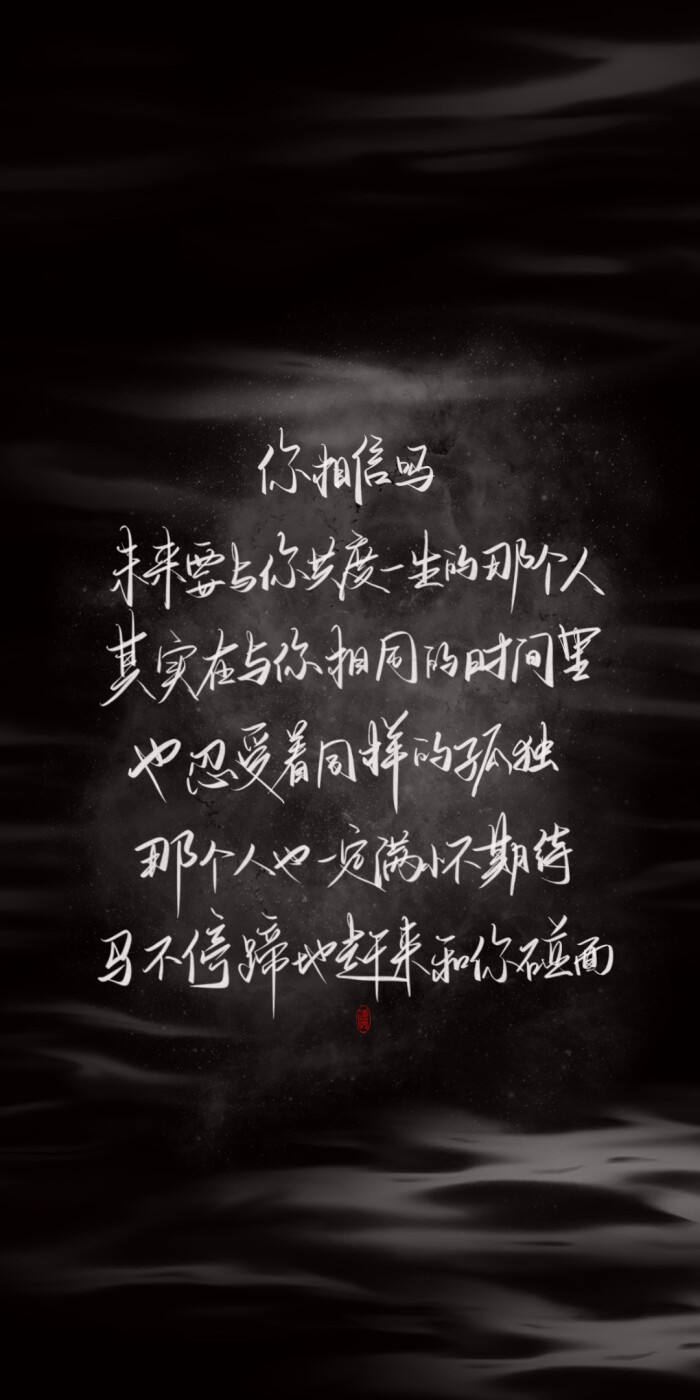 你相信吗
未来要与你共度一生的那个人
其实在与你相同的时间里
也忍受着同样的孤独
那个人也一定满心期待
马不停蹄地赶来和你碰面